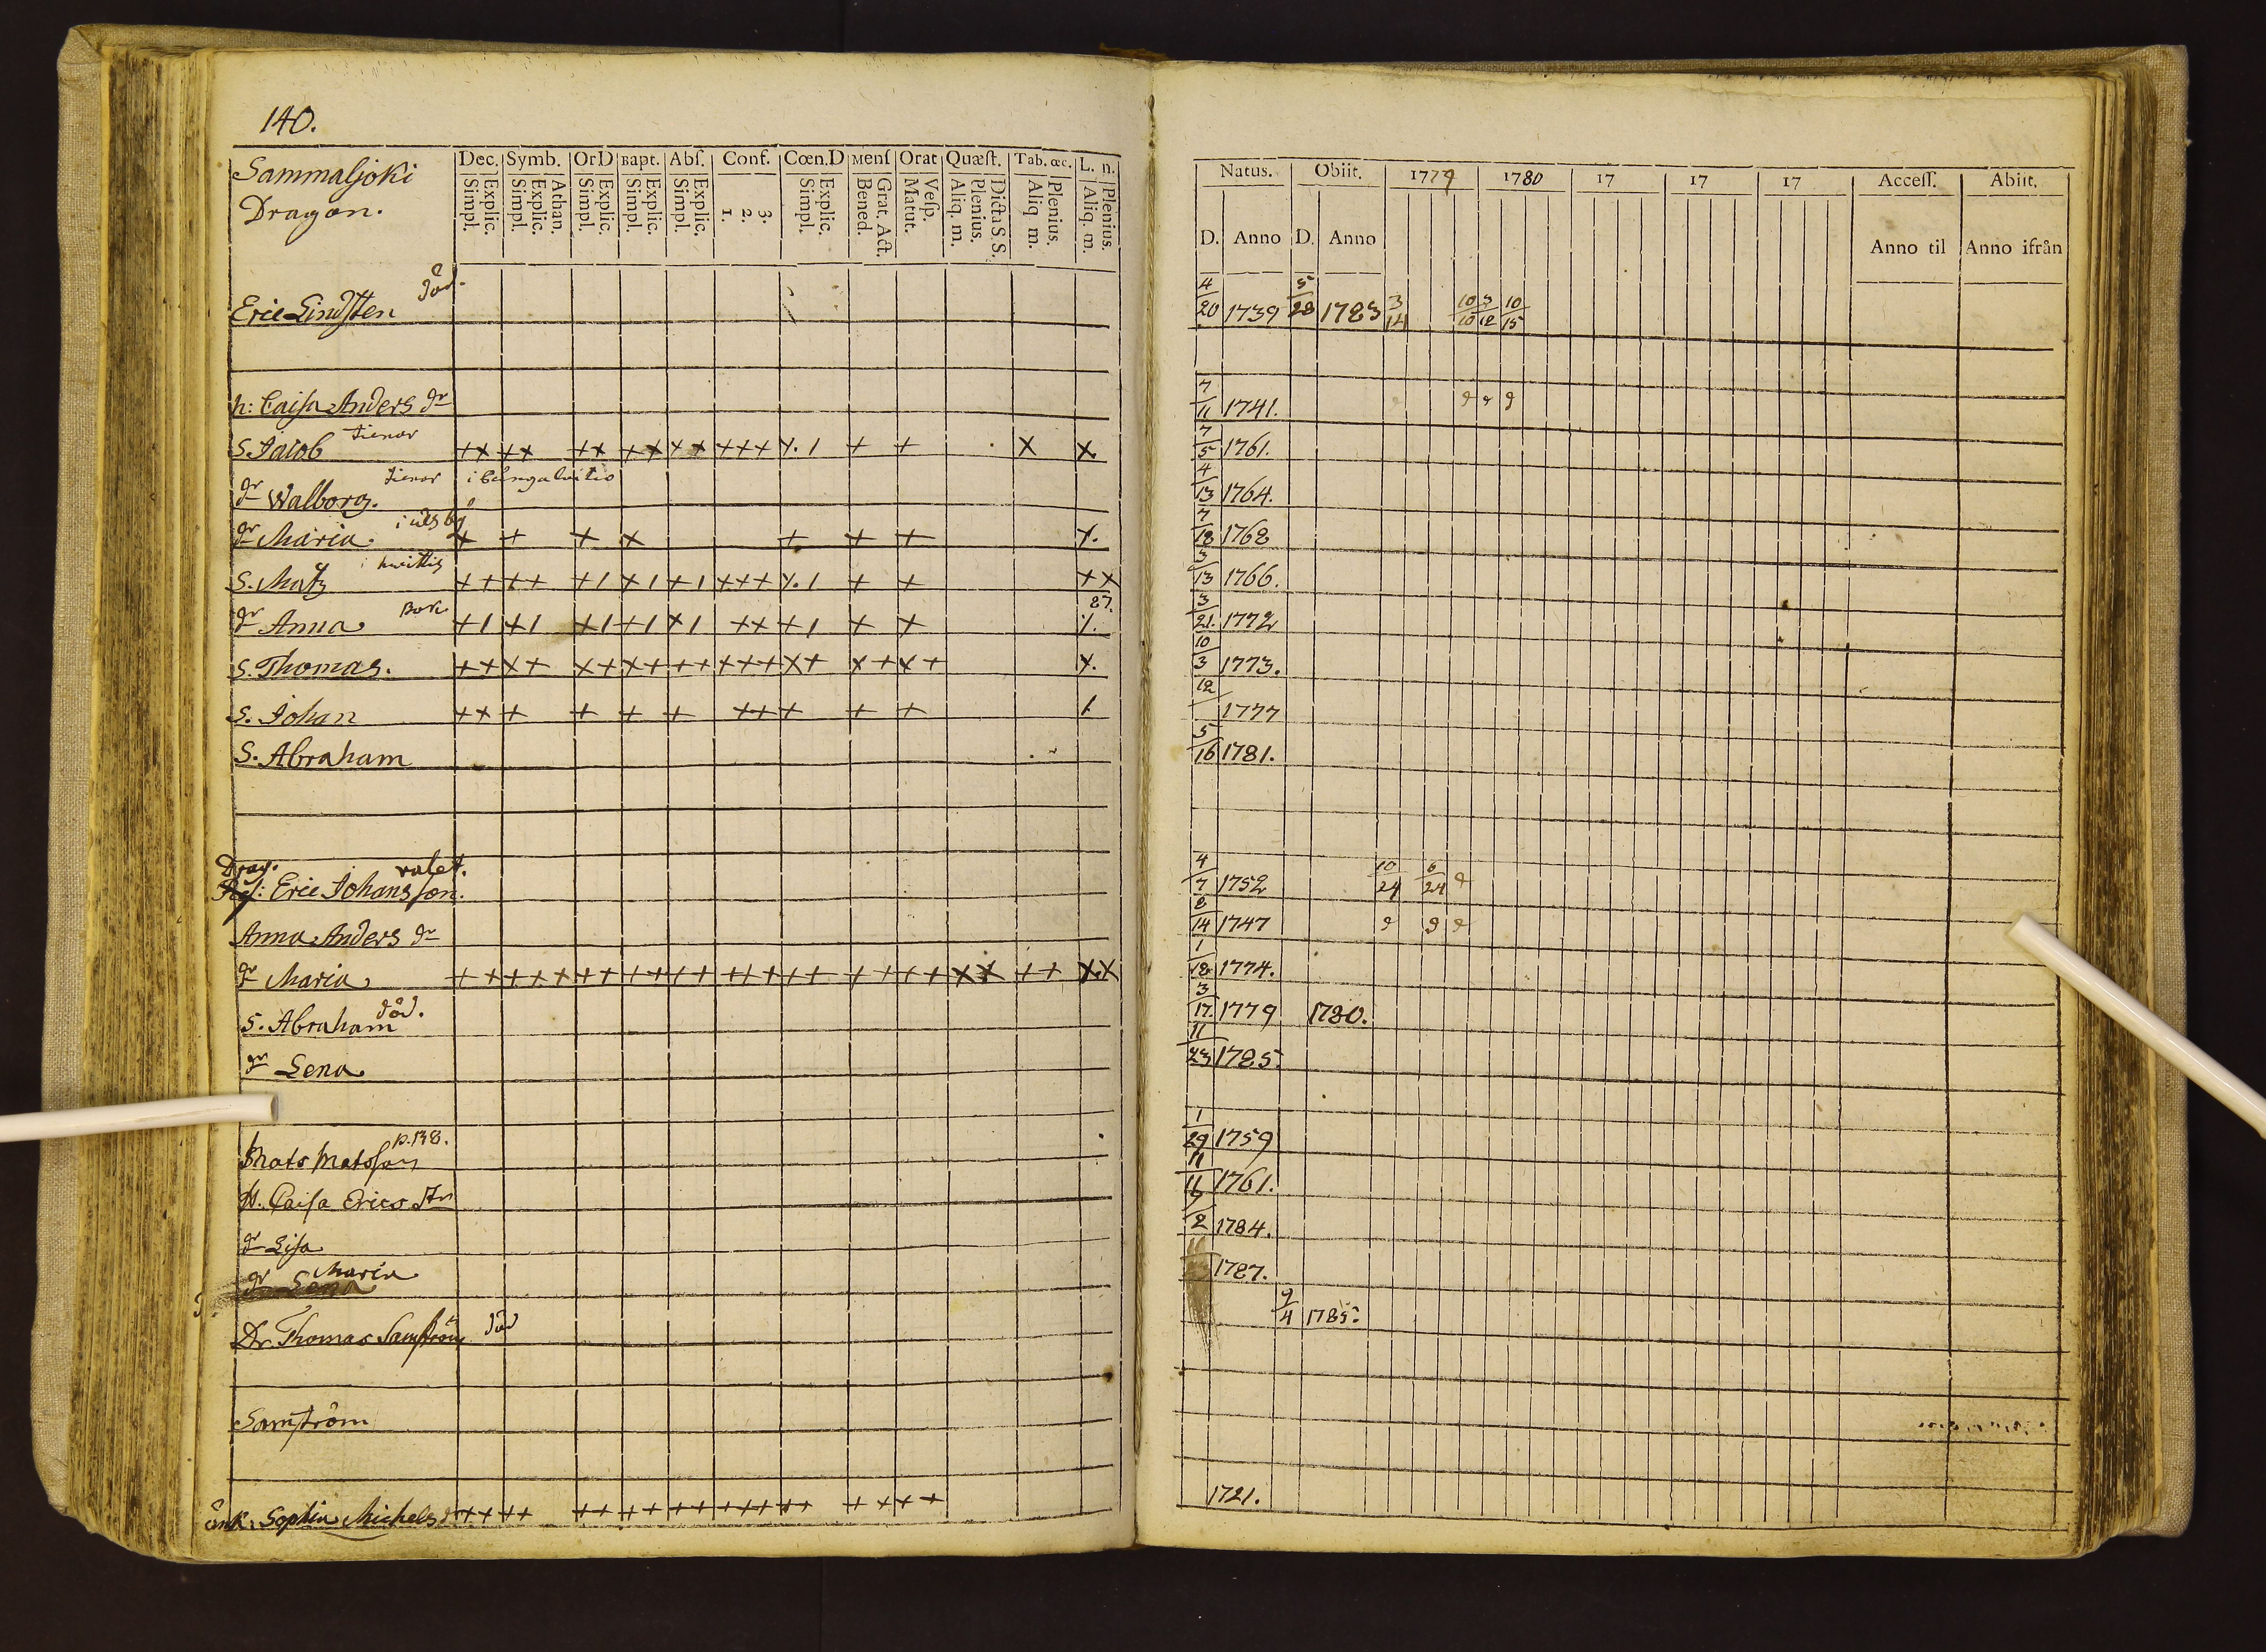 140.
Sammaljoki
Dragon.
Dec. Symb. OrD Bapt. Abſ. Conf. Cœn.D Menſ Orat Quæſt. Tab. œc. L. n.
Simpl. Explic. Simpl. Explic. Athan. Simpl. Explic. Simpl. Explic. Simpl. Explic. 1. 2. 3. Simpl. Explic. Bened. Grat. Act. Matut. Veſp. Aliq. m. Plenius. Dicta S.S. Aliq m. Plenius. Aliq. m. Plenius.
Natus. Obiit. 1779 1780 17 17 17 Acceſſ. Abiit.
D. Anno D. Anno Anno til Anno ifrån
död.
Eric Lindsten 4/20 1739 5/28 1783 3/14 10/10 3/12 10/15
h: Caisa Anders dr 7/11 1741.
tienar
S. Jacob ++ ++ ++ ++ ++ +++ +. 1 + + x x 7/5 1761.
tienar i
dr Walborg. 4/13 1764.
dr Maria. + + + + + + + +. 7/18 1768
S. Matz ++ ++ +1 +1 +1 +++ +. 1 + + ++ 3/13 1766.
87.
dr Anna +1 +1 +1 +1 +1 ++ +1 + + 3/21. 1772
S. Thomas. ++ ++ ++ ++ ++ +++ ++ ++ ++ +. 10/3 1773.
S. Johan ++ + + + + +++ + + + 1 12/ 1777
S. Abraham 5/16 1781.
Drag. valet.
Eric Johansson. 4/7 1752 10/24 6/24
Anna Anders dr 8/14 1747
dr Maria ++ +++ ++ ++ ++ +++ ++ ++ ++ ++ ++ ++ 1/18 1774.
död.
S. Abraham 3/17. 1779 1780.
dr Lena 11/23 1785.
p. 138.
Mats Matsson 1/29 1759
h. Caisa Erics dr 11/11 1761.
dr Lisa 7/2 1784.
Maria
dr Lena 1787.
Dr. Thomas Samström död 9/4 1785.
Samström
Enk. Sophia Michels dr ++ ++ ++ ++ ++ +++ ++ ++ ++ 1721.